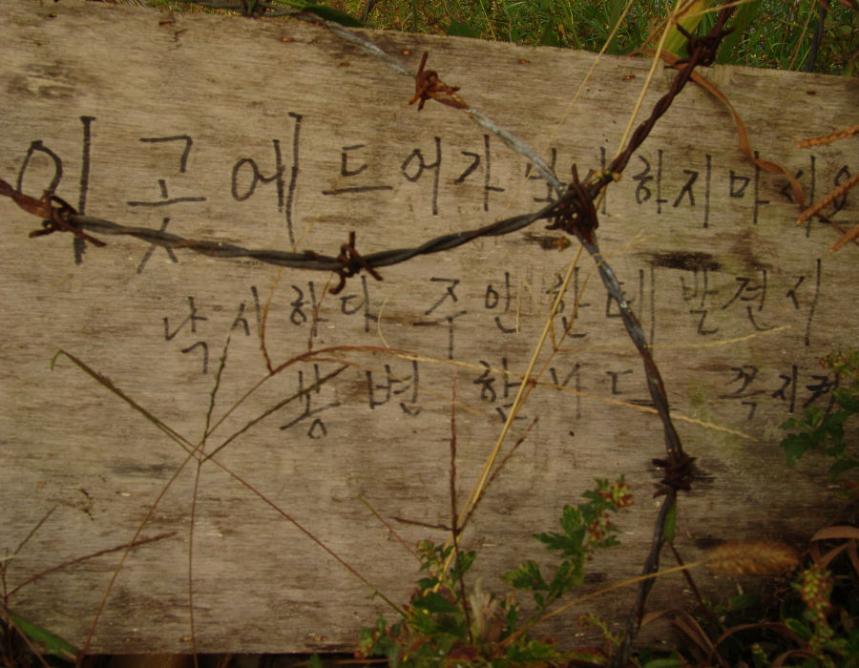 이 곳에 드어가 하지마시오
낙시하다 주인한테 발견시
봉변 합니다 꼭지켜